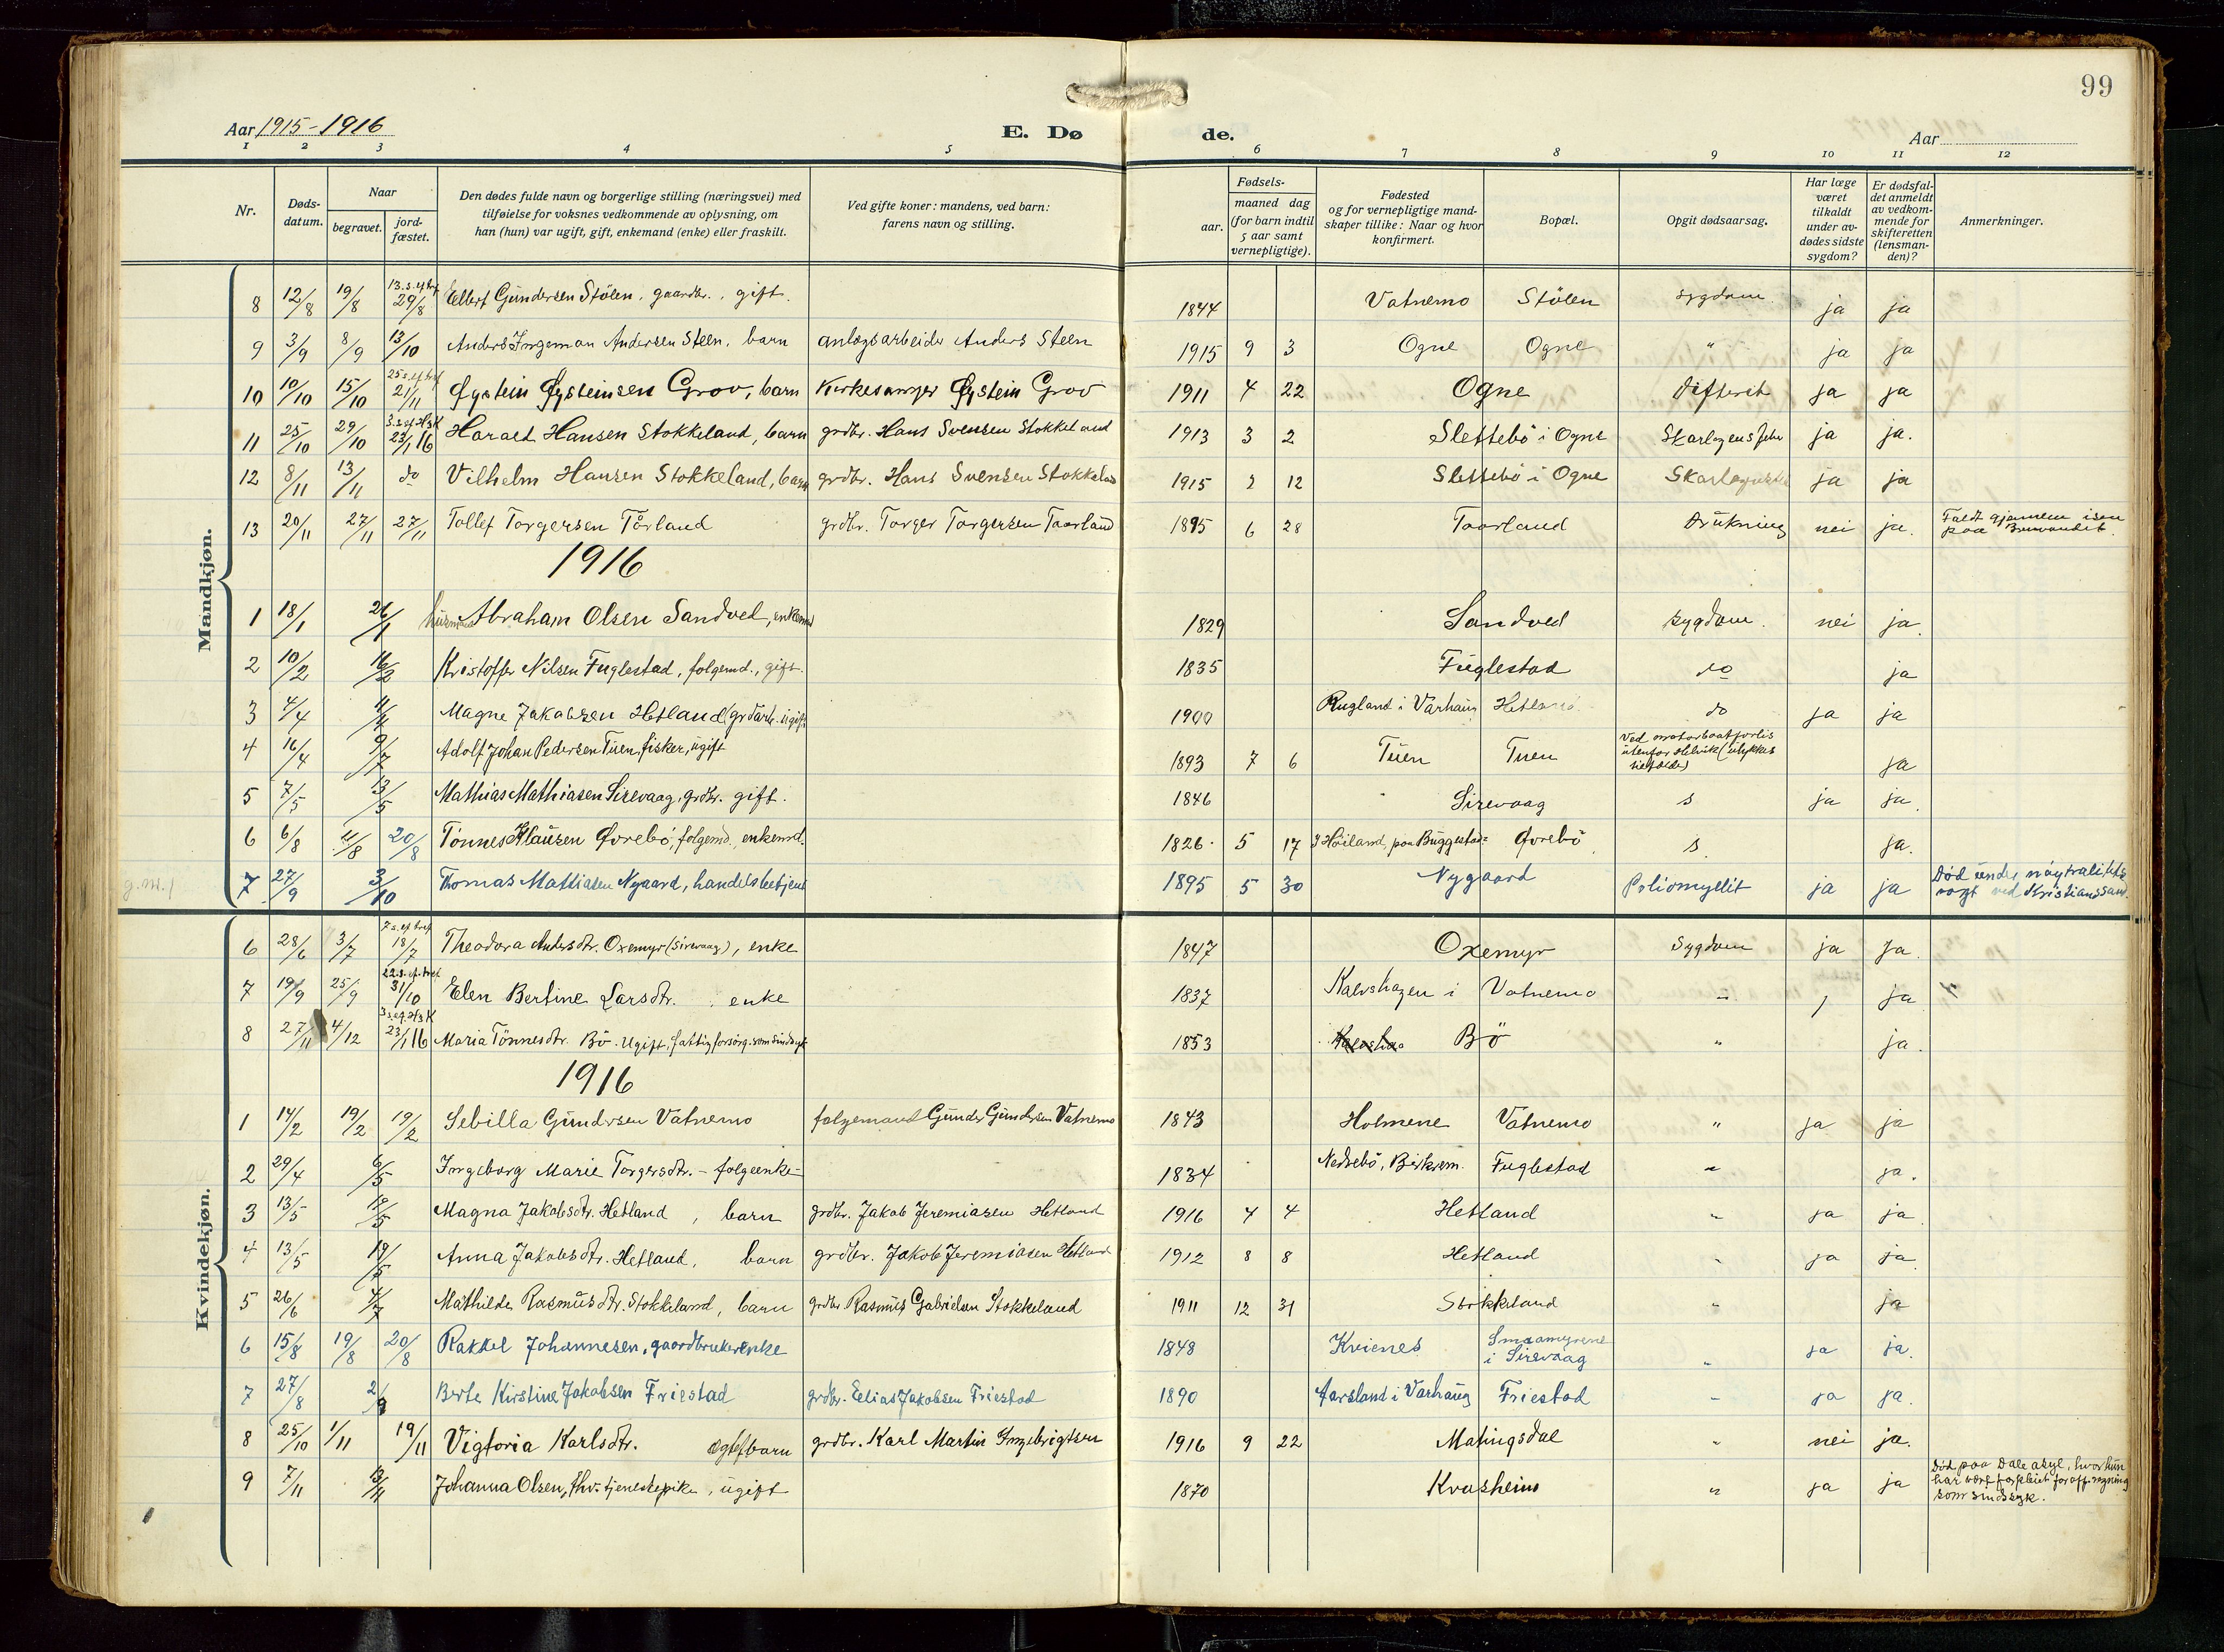 99
Aar 1915-1916 E. Dø de. Aar
1 2 3 4 5 6 7 8 9 10 11 12
Nr.
Døds-datum.
Naar
begravet.
jord-fæstet.
Den dødes fulde navn og borgerlige stilling (næringsvei) med
tilføielse for voksnes vedkommende av oplysning, om
han (hun) var ugift, gift, enkemand (enke) eller fraskilt.
Ved gifte koner: mandens, ved barn:
farens navn og stilling.
Fødsels-
aar.
maaned dag
(for barn indtil
5 aar samt
vernepligtige).
Fødested
og for vernepligtige mand-
skaper tillike: Naar og hvor
konfirmert.
Bopæl.
Opgit dødsaarsag.
Har læge
været
tilkaldt
under av-
dødes sidste
sygdom?
Er dødsfal-
det anmeldt
av vedkom-
mende for
skifteretten
(lensman-
den)?
Anmerkninger.
Mandkjøn.
8 12/8 19/8 13.s.ef.tref 29/8 Ellert Gundersen Stölen, gaardbr., gift. 1844 Vatnemo Stölen sygdom ja ja
9 3/9 8/9 13/10 Anders Ingeman Andersen Steen, barn anlægsarbeider Anders Steen 1915 9 3 Ogne Ogne " ja ja
10 10/10 15/10 25 s.ef.tref 21/11 Øystein Øysteinsen Grov, barn Kirkesanger Øystein Grov 1911 4 22 Ogne difterit ja ja
11 25/10 29/10 3.s.ef.H3K 23/1 16 Harald Hansen Stokkeland, barn grdbr. Hans Svensen Stokkeland 1913 3 2 Slettebö i Ogne Skarlagensfeber ja ja.
12 8/11 13/11 do Vilhelm Hansen Stokkeland, barn grdbr. Hans Svensen Stokkeland 1915 2 12 Slettebö i Ogne ja ja
13 20/11 27/11 27/11 Tollef Torgersen Tårland grdbr. Torger Torgersen Taarland 1895 6 28 Taarland Drukning nei ja. Faldt gjennem isen
paa Bruvandet.
1916
1 18/1 26/1 husmand Abraham Olsen Sandved, enkemd 1829 Sandved sygdom. nei ja.
2 10/2 16/2 Kristoffer Nilsen Fuglestad, folgemd., gift. 1835 Fuglestad do ja
3 4/4 11/4 Magne Jakobsen Hetland (grdarb. ugift 1900 Rugland i Varhaug Hetland do ja ja
4 16/4 9/7 Adolf Johan Pedersen Tuen, fisker, ugift 1893 7 6 Tuen Tuen Ved motorbaatforlis
utenfor Helvik (ulykkes
tilfælde) ja
5 7/5 13/5 Mathias Mathiasen Sirevaag, grdbr. gift. 1846 Sirevaag s ja ja.
6 6/8 11/8 20/8 Tönnes Klausen Øvrebö, folgemd., enkemd. 1826. 5 17 I Höiland, paa Buggestad Øvrebö s. ja.
g.m.f 7 27/9 3/10 Thomas Mattiasen Nygaard, handelsbetjent 1895 5 30 Nygaard Poliomyelit ja ja Död under nöytralitets
vagt ved Kristianssand.
Kvindekjøn.
6 28/6 3/7 7 s.ef.tref 18/7 Theodora Andersdtr. Oxemyr (Sirevaag), enke 1847 Oxemyr Sygdom ja ja.
7 19/9 25/9 22.s.ef.tref 31/10 Elen Bertine Larsdtr. enke 1837 Kalvshagen i Vatnemo " ja
8 27/11 4/12 3 s.ef.H3K 23/1 16 Maria Tönnesdtr. Bö. Ugift, fattigforsörg. som sindsyk 1853 Bö " ja.
1916
1 14/2 19/2 19/2 Sebilla Gundersen Vatnemo folgemand Gunder Gundersen Vatnemo 1843 Holmene Vatnemo " ja ja
2 29/4 6/5 Ingeborg Marie Torgersdtr. - folgeenke- 1834 Nedrebö, Birkrem. Fuglestad " ja.
3 13/5 19/5 Magna Jakobsdtr. Hetland, barn grdbr. Jakob Jeremiasen Hetland 1916 4 4 Hetland " ja ja.
4 13/5 19/5 Anna Jakobsdtr. Hetland, barn grdbr. Jakob Jeremiasen Hetland 1912 8 8 Hetland " ja ja.
5 26/6 4/7 Mathilde Rasmusdtr. Stokkeland, barn grdbr Rasmus Gabrielsen Stokkeland 1911 12 31 Stokkeland " ja
6 15/8 19/8 20/8 Rakkel Johannesen, gaardbrukerenke 1848 Kvienes Smaamyrene
i Sirevaag " ja ja.
7 27/8 2/9 Berte Kirstine Jakobsen Friestad grdbr. Elias Jakobsen Friestad 1890 Aarsland i Varhaug Friestad " ja ja.
8 25/10 1/11 19/11 Vigtoria Karlsdtr. ægtef. barn grdbr. Karl Martin Ingebrigtsen 1916 9 22 Matingsdal " nei ja.
9 7/11 13/11 Johanna Olsen, fhv. tjenestepike, ugift 1870 Kvasheim " ja ja Död paa Dale asyl, hvor hun
har været forpleiet for off. regning
som sindssyk.